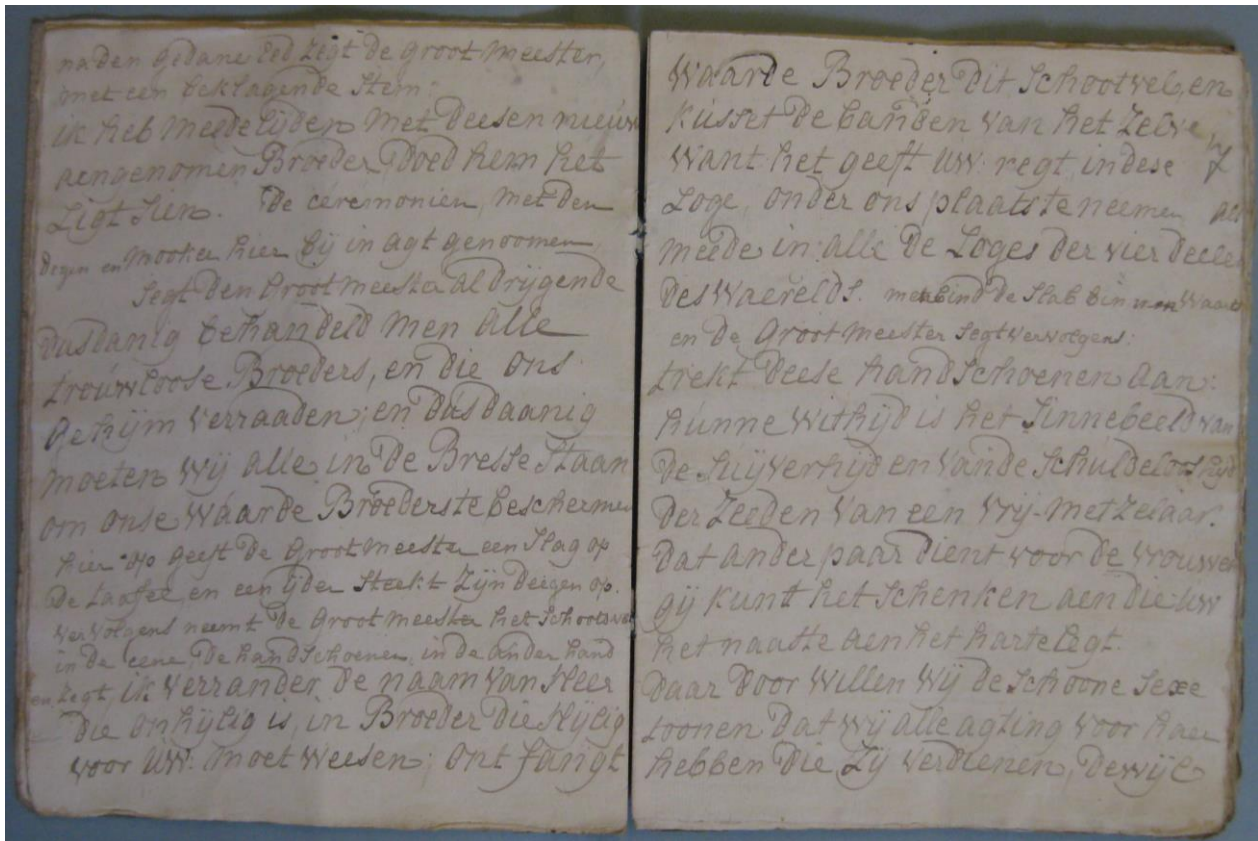 na den gedane Eed Zegt de groot Meester,
met een beklagende Stem:
ik heb Meedelijden Met deesen nieuw
aengenomen Broeder, Doed hem het
Ligt Sien. De ceremonien, met den
degen en Mooker hier bij in agt genoomen,
Segt den Groot Meester al drijgende
dusdanig behandeld Men alle
trouwloose Broeders, en die ons
Gehijm Verraaden; en dusdaanig
moeten wij alle in de Bresse Staan
om onse Waarde Broeders te beschermen
hier op geeft de Groot Meester een Slag op
de taafel, en een ijder Steekt Zijn deegen op.
vervolgens neemt de Groot Meester het Schootsvel
in de eene, de handschoenen, in de ander hand
en Zegt, ik Verrander, de naam Van Heer
die onhijlig is, in Broeder die Hijlig
voor UW: moet Weesen; Ont fangt
Waarde Broeder dit Schootvel, en
Kusset de banden van het Zelve,
Want het geeft UW: regt, in dese
Loge, onder ons plaats te neemen als
meede in alle de Loges der vier deelen
des Waerelds. men bind de Slab binnen Waarts
en de Groot Meester Segt vervolgens:
trekt deese handschoenen aan:
hunne Withijd is het Sinnebeeld van
de Suijverhijd en Van de Schuldelooshijd
der Zeeden Van een Vrij-Metzelaar.
Dat ander paar dient voor de vrouwen
gij kunt het Schenken aen die UW
het naaste aen het harte legt.
daar door Willen Wij de Schoone Sexe
toonen dat Wij alle agting voor haer
hebben die, Zij Verdienen, dewijl